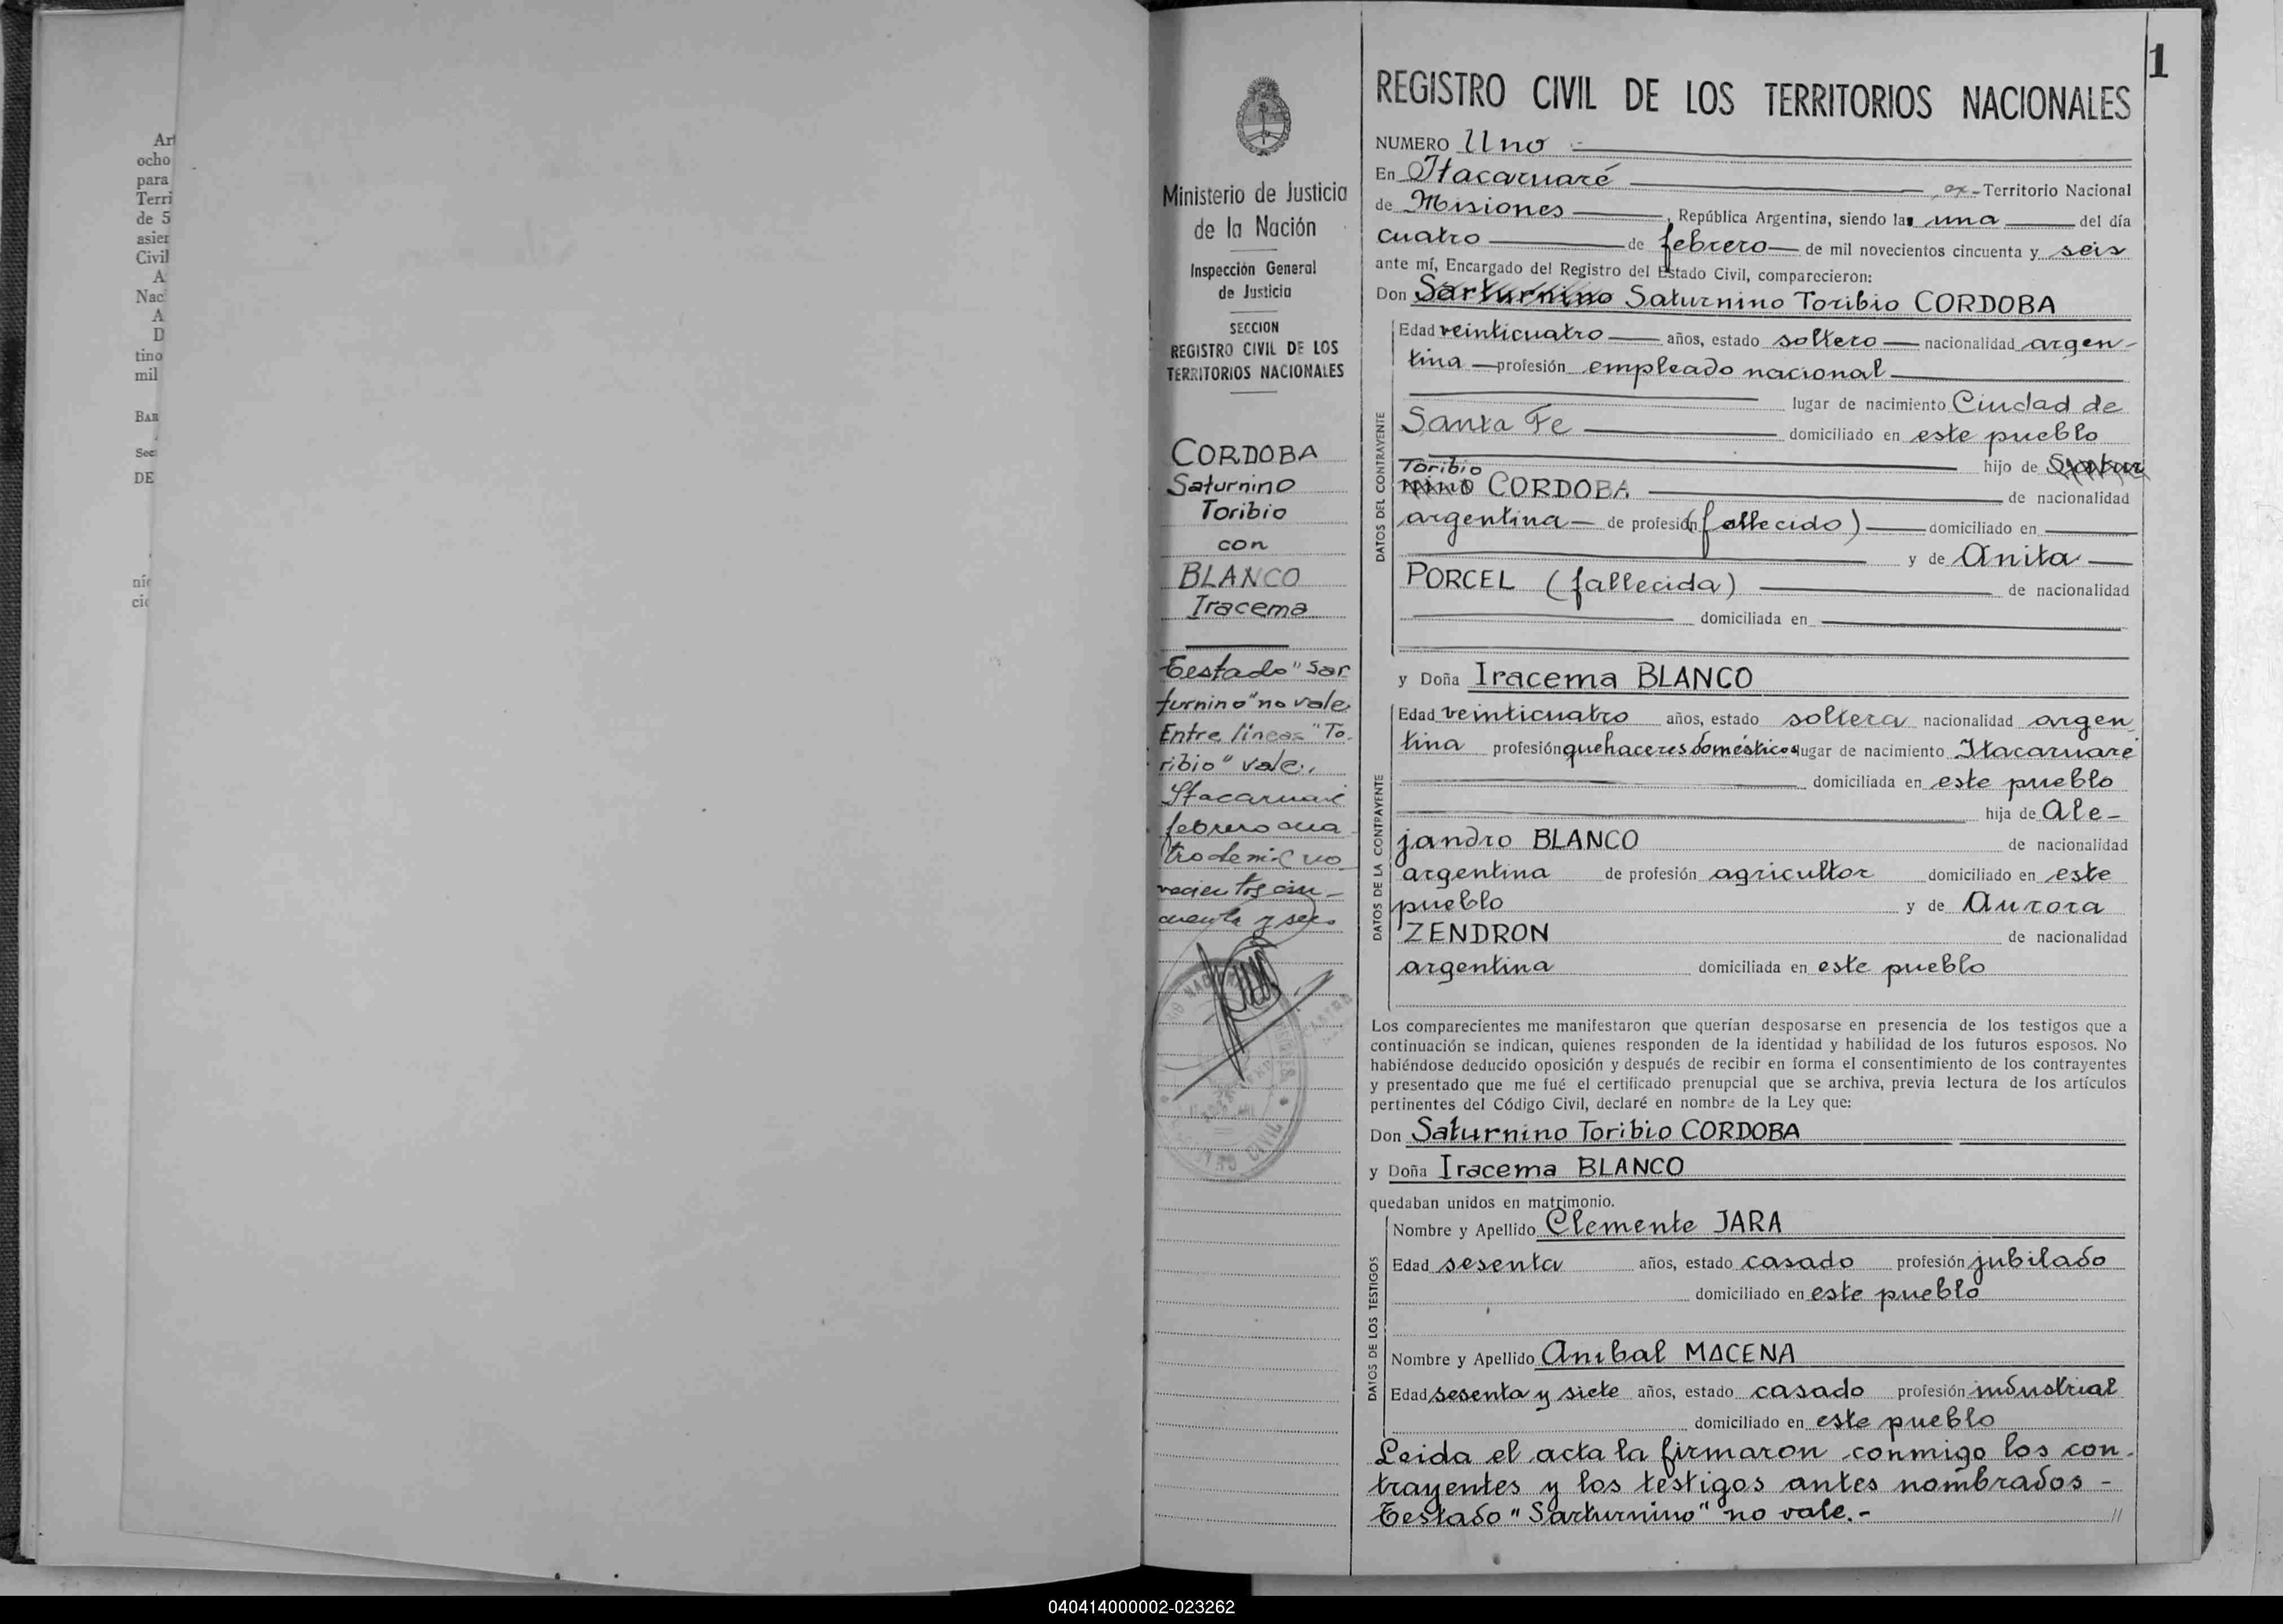 Art
ocho
para
Terri
de 5
asier
Civil
A
Nac
A
D
tino
mil
BAR
Sec
DE
nic
cio
Ministerio de Justicia
de la Nación
Inspección General
de Justicia
SECCION
REGISTRO CIVIL DE LOS
TERRITORIOS NACIONALES
CORDOBA
Saturnino
Toribio
con
BLANCO
Iracema
Testado "Sar
turnino" no vale.
Entre líneas "To
ribio" vale.,
Itacaruaré
febrero cua
tro de mil no
vecientos cin-
cuenta y seis
CIVIL
1
REGISTRO CIVIL DE LOS TERRITORIOS NACIONALES
NUMERO Uno
En Itacaruaré ex-Territorio Nacional
de Misiones, República Argentina, siendo las una del día
cuatro de febrero de mil novecientos cincuenta y seis
ante mí, Encargado del Registro del Estado Civil, comparecieron:
Don Sarturnino Saturnino Toribio CORDOBA
DATOS DEL CONTRAYENTE
Edad veinticuatro años, estado soltero nacionalidad argen-
tina profesión empleado nacional
lugar de nacimiento Ciudad de
Santa Fe domiciliado en este pueblo
Toribio hijo de Satur
nino CORDOBA de nacionalidad
argentina de profesión (fallecido) domiciliado en
y de Anita
PORCEL (fallecida) de nacionalidad
domiciliada en
y Doña Iracema BLANCO
DATOS DE LA CONTRAYENTE
Edad veinticuatro años, estado soltera nacionalidad argen
tina profesión quehaceres domésticos lugar de nacimiento Itacaruaré
domiciliada en este pueblo
hija de Ale-
jandro BLANCO de nacionalidad
argentina de profesión agricultor domiciliado en este
pueblo y de Aurora
ZENDRON de nacionalidad
argentina domiciliada en este pueblo
Los comparecientes me manifestaron que querían desposarse en presencia de los testigos que a
continuación se indican, quienes responden de la identidad y habilidad de los futuros esposos. No
habiéndose deducido oposición y después de recibir en forma el consentimiento de los contrayentes
y presentado que me fué el certificado prenupcial que se archiva, previa lectura de los artículos
pertinentes del Código Civil, declaré en nombre de la Ley que:
Don Saturnino Toribio CORDOBA
y Doña Iracema BLANCO
quedaban unidos en matrimonio.
DATOS DE LOS TESTIGOS
Nombre y Apellido Clemente JARA
Edad sesenta años, estado casado profesión jubilado
domiciliado en este pueblo
Nombre y Apellido Anibal MACENA
Edad sesenta y siete años, estado casado profesión industrial
domiciliado en este pueblo
Leida el acta la firmaron conmigo los con-
trayentes y los testigos antes nombrados -
Testado "Sarturnino" no vale.- //
040414000002-023262